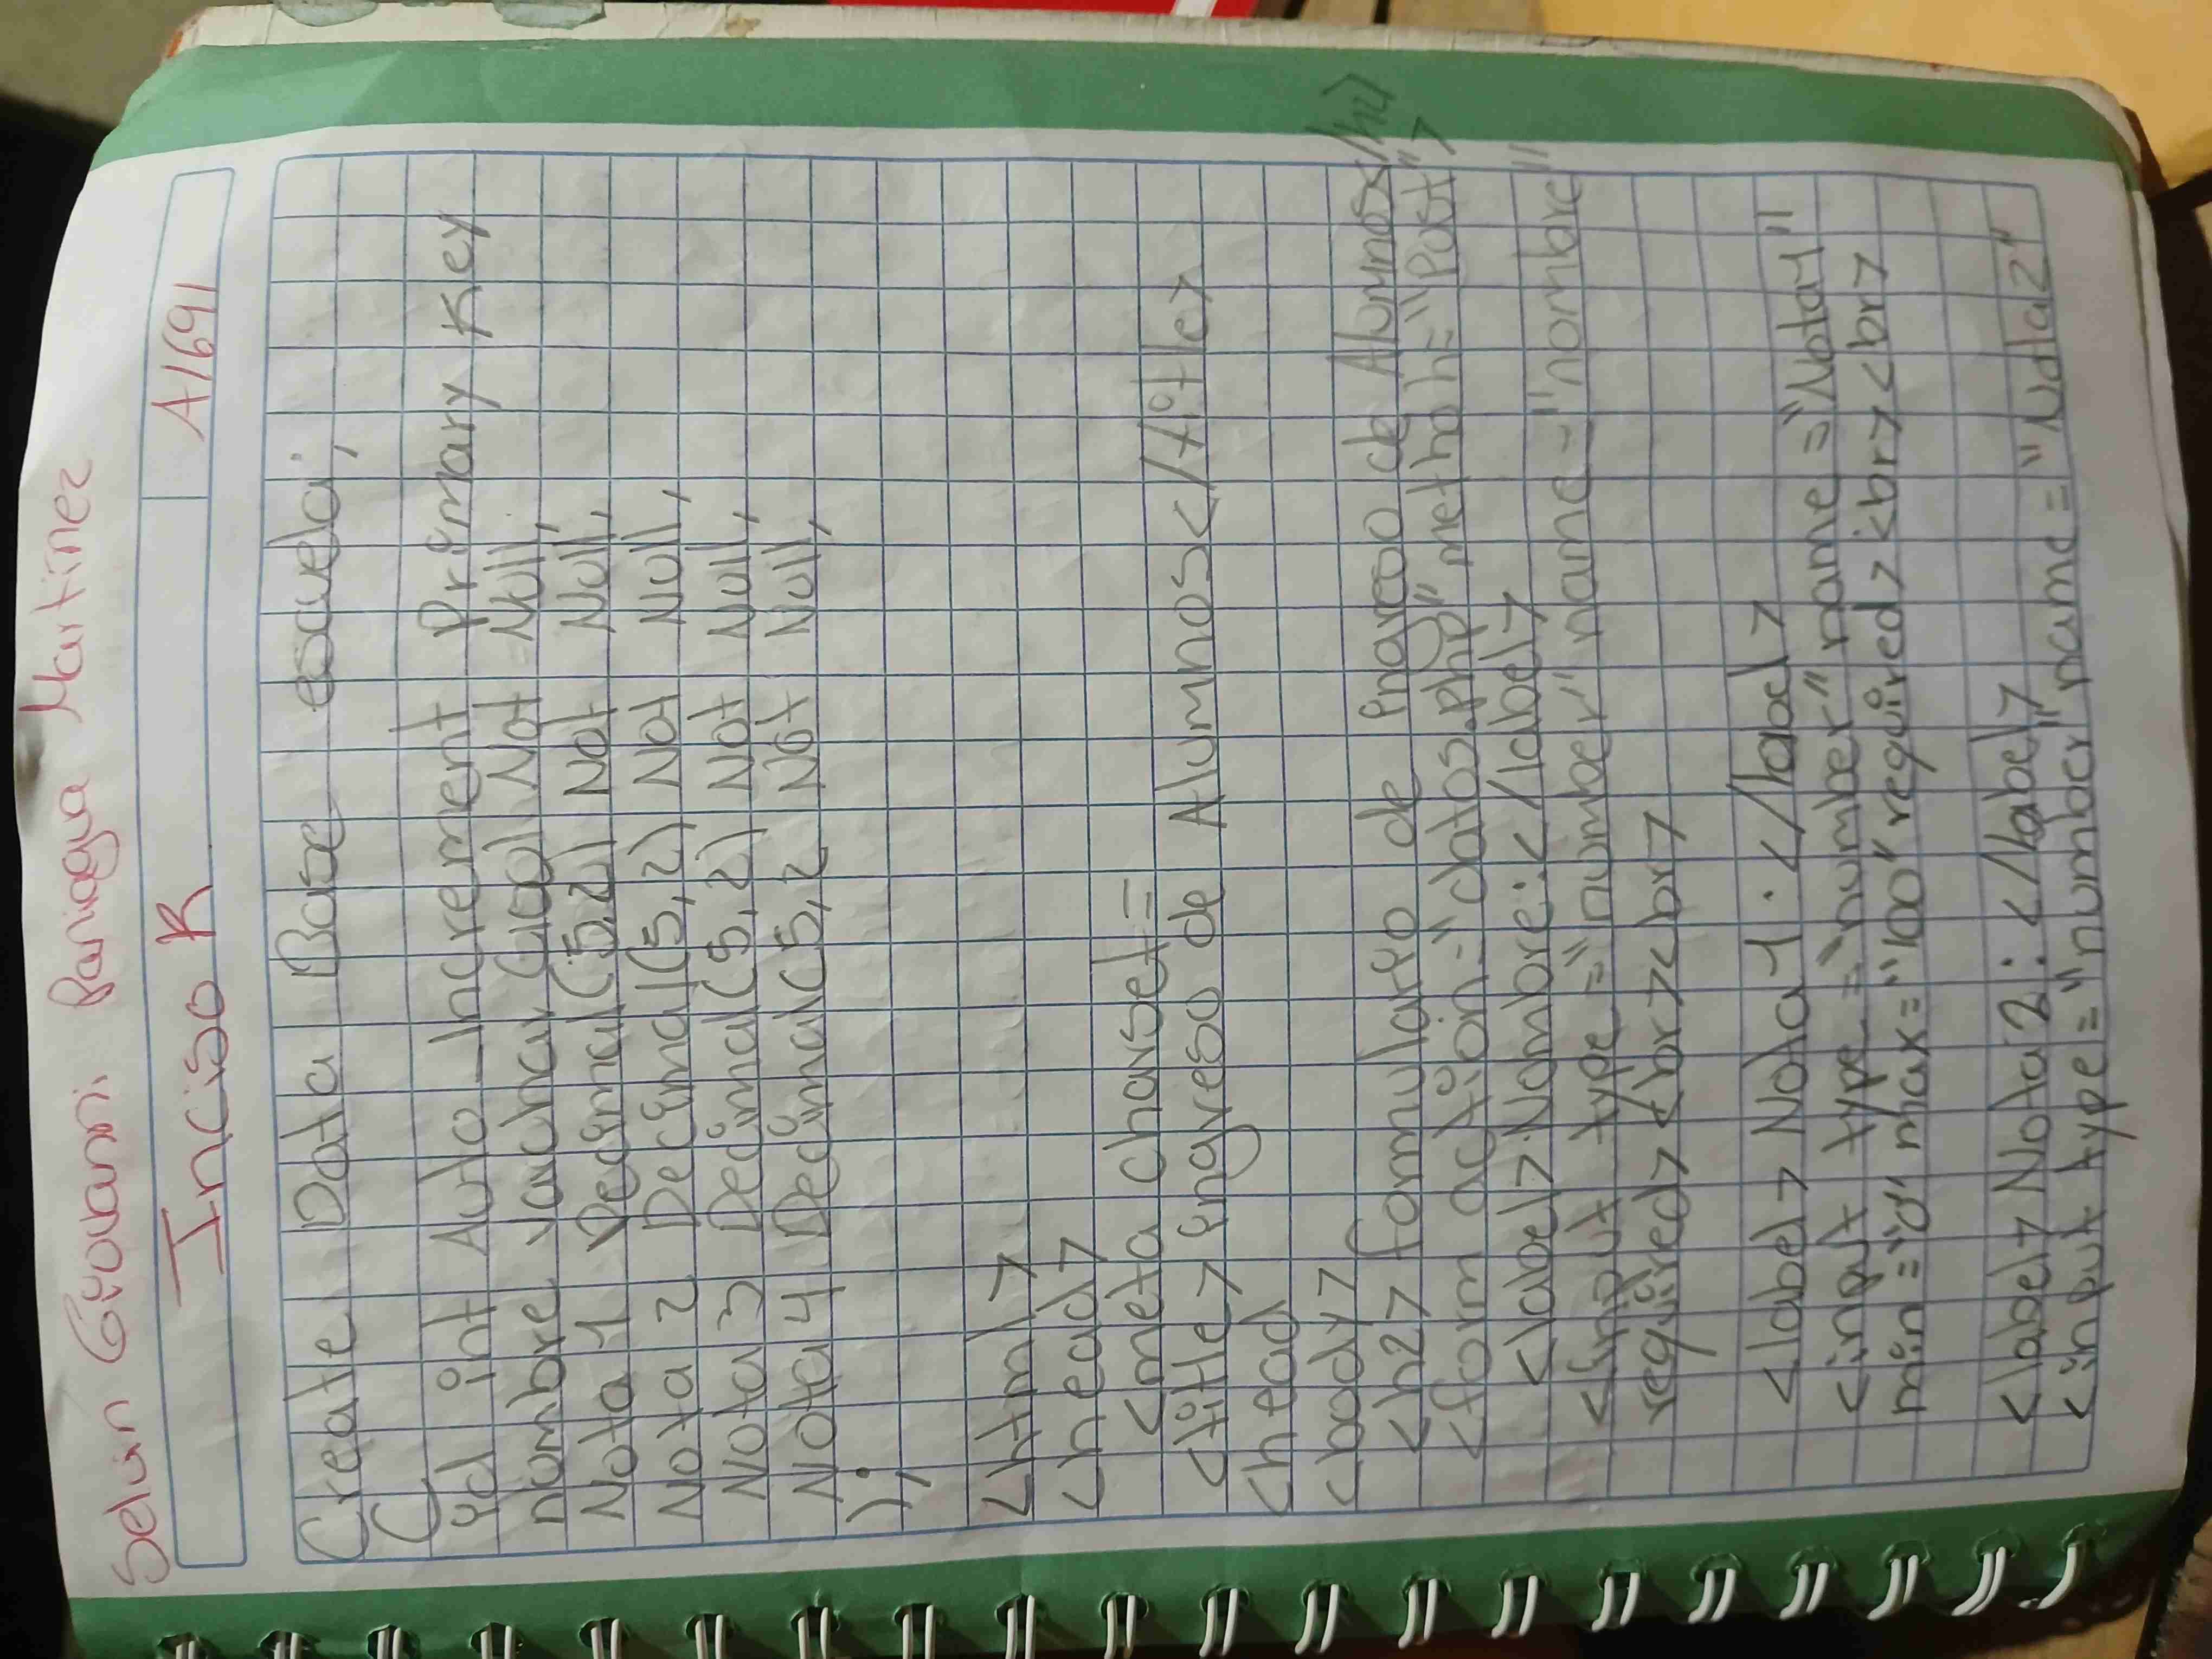 Selvin Giovanni Paniagua Martinez
Inciso K A1691
Create Data Base escuela;
(
id int Auto_Increment Primary Key
nombre varchar(100) Not Null,
Nota 1 Decimal(5,2) Not Null,
Nota 2 Decimal(5,2) Not Null,
Nota 3 Decimal(5,2) Not Null,
Nota 4 Decimal(5,2 Not Null,
);
<html>
<head>
<meta charset=
<title> ingreso de Alumnos</title>
<head>
<body>
<h2> formulario de ingreso de Alumnos</h2>
<form action="datos.php" method="Post">
<label> Nombre:</label>
<input type="number" name="nombre"
required> <br><br>
<label> Nota 1: </label>
<input type="number" name="Nota1"
min="0" max="100" required> <br> <br>
<label> Nota 2: </label>
<input type="number" name="Nota2"